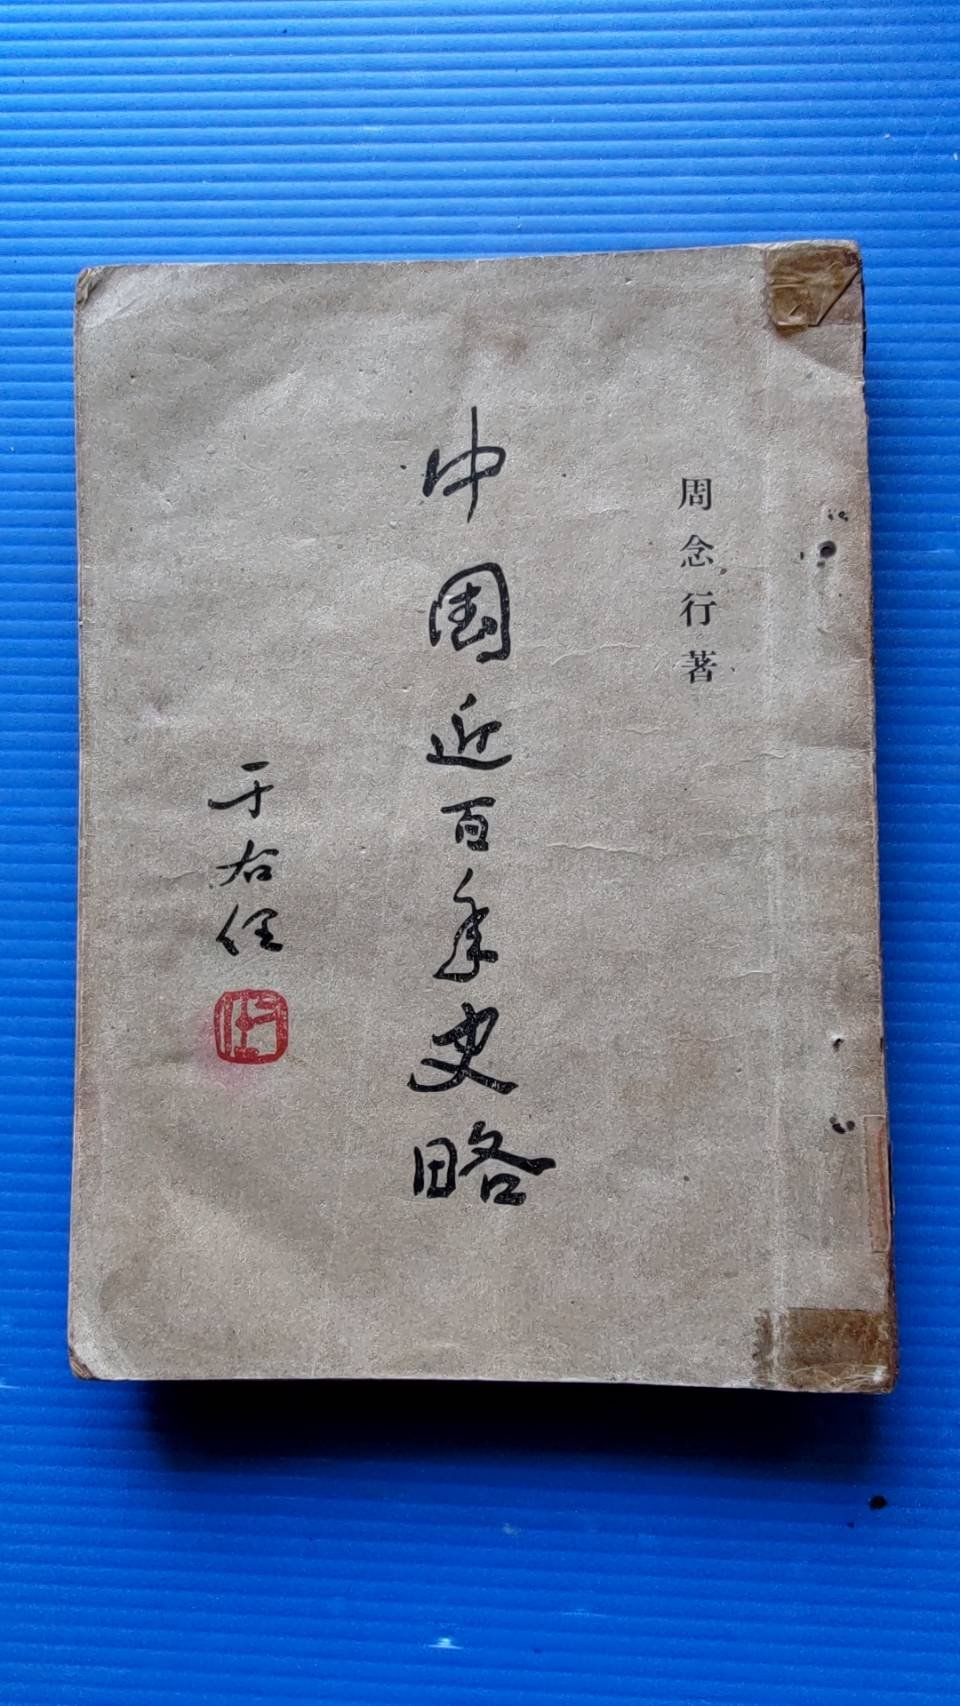 周念行著
中国近百年史略
于右任